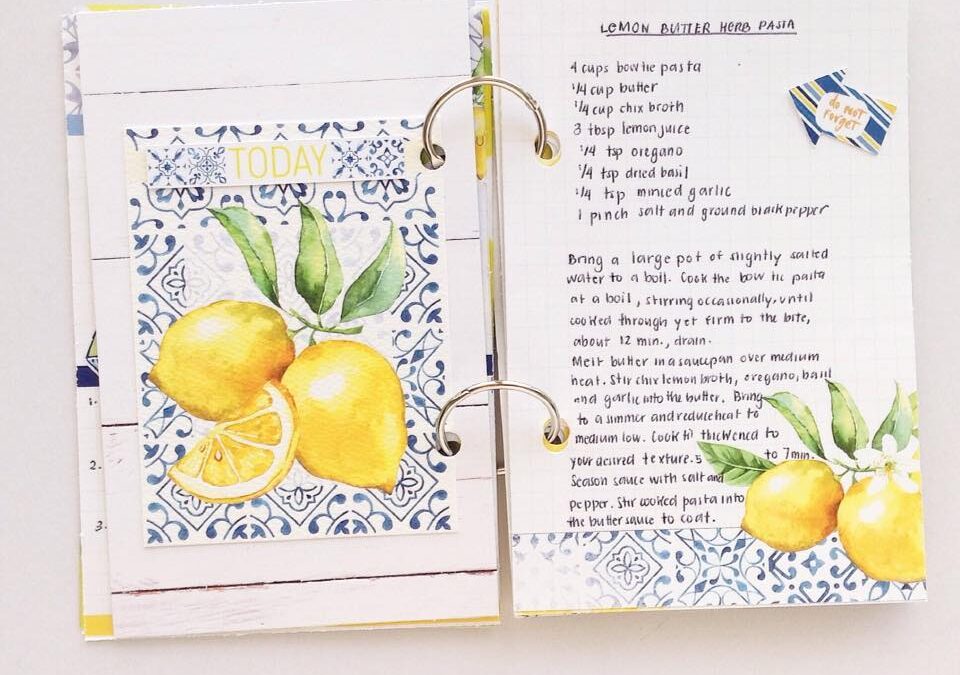 TODAY
1.
2.
3.
LEMON BUTTER HERB PASTA
4 cups bowtie pasta
1/4 cup butter
1/4 cup chix broth
3 tbsp lemon juice
1/4 tsp oregano
1/4 tsp dried basil
1/4 tsp minced garlic
1 pinch salt and ground black pepper
do not
forget
Bring a large pot of slightly salted
water to a boil. Cook the bow tie pasta
at a boil, stirring occasionally, until
cooked through yet firm to the bite,
about 12 min., drain.
Melt butter in a saucepan over medium
heat. Stir chix lemon broth, oregano, basil
and garlic into the butter. Bring
to a simmer and reduce heat to
medium low. Cook til thickened to
your desired texture. 5 to 7 min.
Season sauce with salt and
pepper. Stir cooked pasta into
the butter sauce to coat.